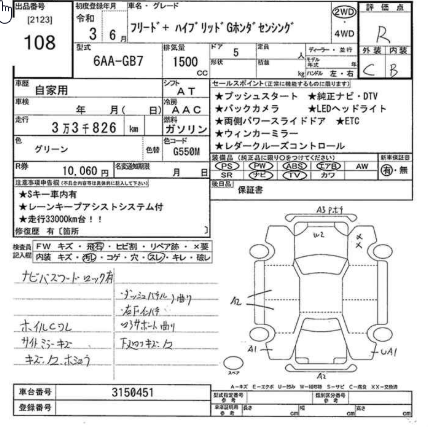 出品番号
[2123]
108
初度登録年月
令和
3年6月
車名・グレード
フリード+ ハイブリッドGホンダセンシング
2WD
・
4WD
評価点
R
型式
6AA-GB7
排気量
1500
CC
ドア
5
形状
定員
人
積載
kg
ディーラー・並行
モデル年式
年
ハンドル 左・右
外装
内装
C
B
車歴
自家用
シフト
AT
車検
年 月( 日)
冷房
AAC
走行
3万3千826 km
燃料
ガソリン
色
グリーン
色コード
G550M
R券
10,060 円
名変期限
月 日
セールスポイント(正常に機能するものに限ります)
★プッシュスタート ★純正ナビ・DTV
★バックカメラ ★LEDヘッドライト
★両側パワースライドドア ★ETC
★ウィンカーミラー
★レダークルーズコントロール
装備品 (純正品に限り○をつけてください)
PS PW ABS エアB AW
SR ナビ TV カワ
新車保証書
有・無
後日品
保証書
注意事項申告欄
★Sキー車内有
★レーンキープアシストシステム付
★走行33000km台!!
修復歴 有 [箇所 ]
検査員記入欄
FW キズ・飛石・ヒビ割・リペア跡・×要
内装 キズ・汚れ・コゲ・穴・スレ・キレ・破レ
ナビパスワードロック有
ホイルCワレ
サイドミラーキズ
A3
W2
A2
A1
UA1
A2
スペア
車台番号
3150451
登録番号
型式指定番号
類別区分番号
長さ cm
幅 cm
高さ cm